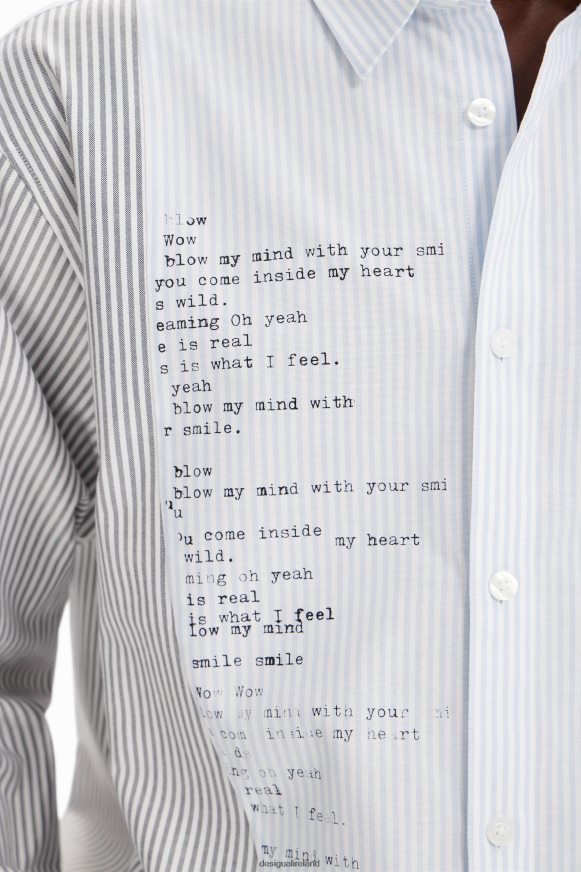 blow
Wow
blow my mind with your smi
you come inside my heart
s wild.
eaming Oh yeah
e is real
s is what I feel.
yeah
blow my mind with
r smile.
blow
blow my mind with your smi
u
ou come inside my heart
wild.
ming oh yeah
is real
is what I feel
low my mind
smile smile
Wow Wow
low my mind with your mi
com inside my heart
ds
ng oh yeah
real
what I feel.
my mind with
desigualireland